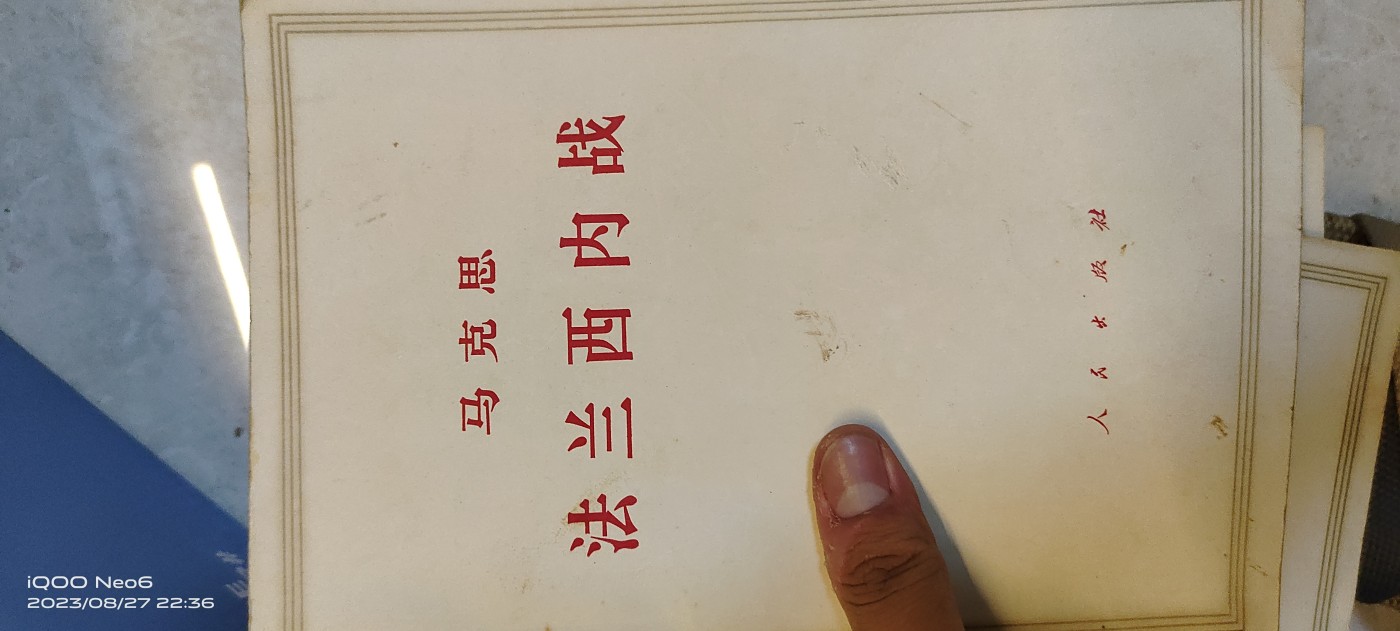 马克思
法兰西内战
人民出版社
iQOO Neo6
2023/08/27 22:36